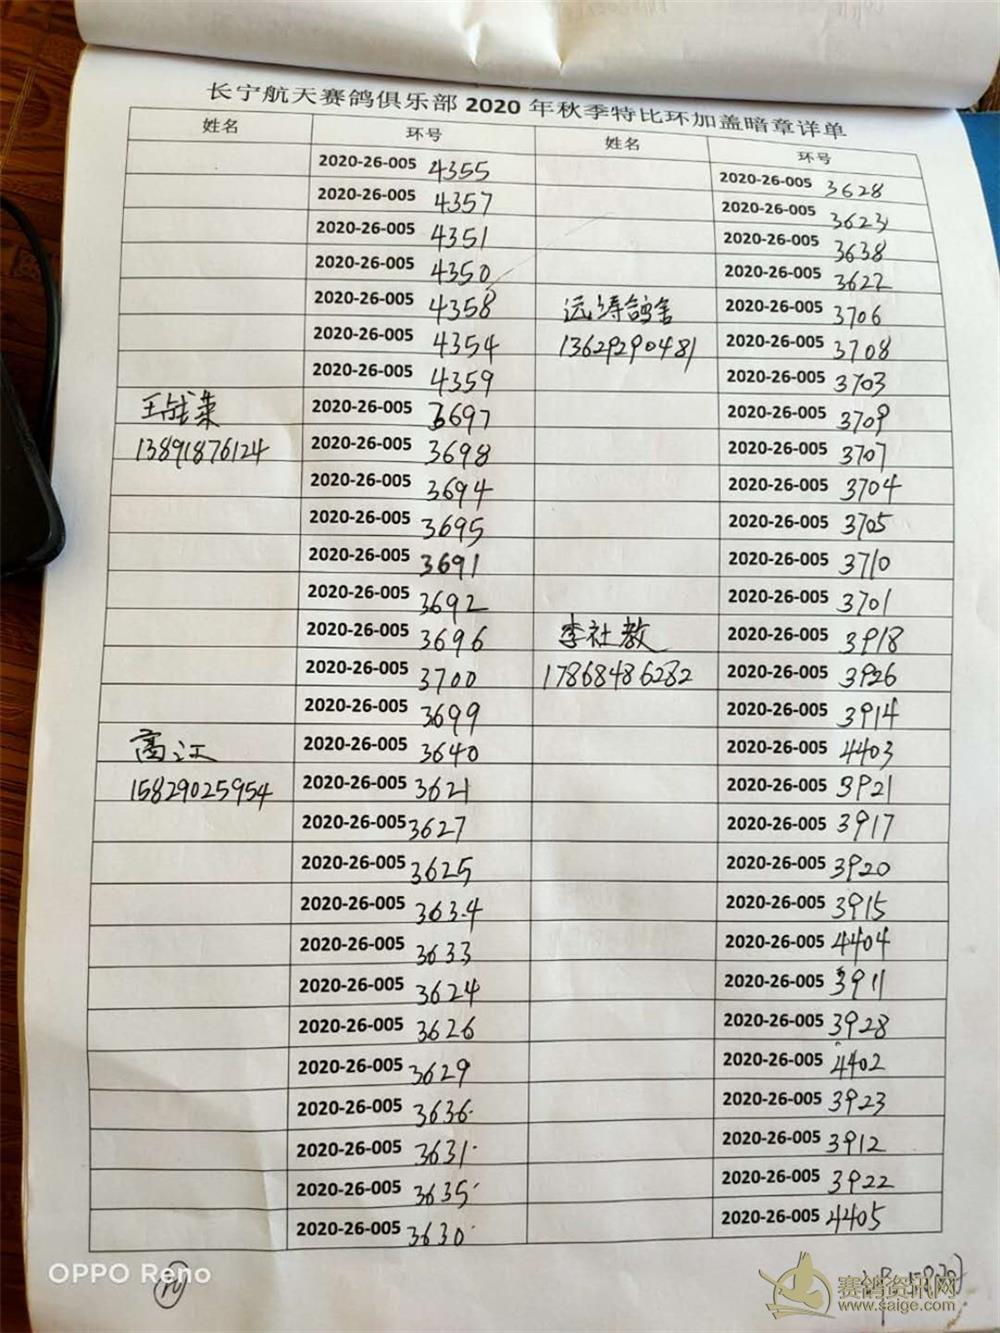 长宁航天赛鸽俱乐部 2020 年秋季特比环加盖暗章详单
姓名 环号 姓名 环号
2020-26-005 4355 2020-26-005 3628
2020-26-005 4357 2020-26-005 3623
2020-26-005 4351 2020-26-005 3638
2020-26-005 4350 2020-26-005 3622
2020-26-005 4358 远涛鸽舍 2020-26-005 3706
2020-26-005 4354 13629290481 2020-26-005 3708
2020-26-005 4359 2020-26-005 3703
王战荣 2020-26-005 3697 2020-26-005 3709
13891876124 2020-26-005 3698 2020-26-005 3707
2020-26-005 3694 2020-26-005 3704
2020-26-005 3695 2020-26-005 3705
2020-26-005 3691 2020-26-005 3710
2020-26-005 3692 2020-26-005 3701
2020-26-005 3696 李社教 2020-26-005 3918
2020-26-005 3700 17868486282 2020-26-005 3926
2020-26-005 3699 2020-26-005 3914
高江 2020-26-005 3640 2020-26-005 4403
15829025954 2020-26-005 3621 2020-26-005 3921
2020-26-005 3627 2020-26-005 3917
2020-26-005 3625 2020-26-005 3920
2020-26-005 3634 2020-26-005 3915
2020-26-005 3633 2020-26-005 4404
2020-26-005 3624 2020-26-005 3911
2020-26-005 3626 2020-26-005 3928
2020-26-005 3629 2020-26-005 4402
2020-26-005 3636 2020-26-005 3923
2020-26-005 3631 2020-26-005 3912
2020-26-005 3635 2020-26-005 3922
2020-26-005 3630 2020-26-005 4405
OPPO Reno
赛鸽资讯网
www.saige.com